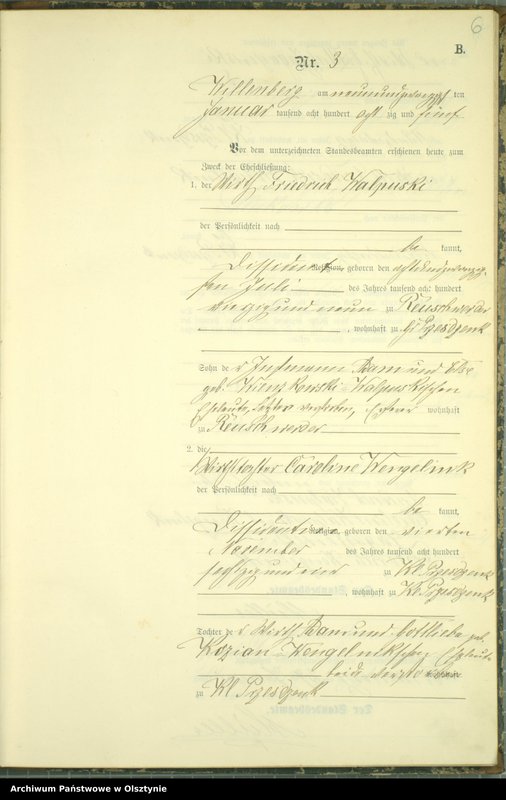 6
B.
Nr. 3
Willenberg am neunundzwanzigsten
Januar tausend acht hundert achtzig und fünf
Vor dem unterzeichneten Standesbeamten erschienen heute zum
Zweck der Eheschließung:
1. der Wirth Friedrich Kalpuski
der Persönlichkeit nach
be kannt,
Dissident Religion, geboren den achtundzwanzig-
sten Juli des Jahres tausend acht hundert
vierzig und neun zu Reuschwerder
, wohnhaft zu Gr Przesdzenk
Sohn des Instmann Adam und
geb. Walpuskischen
Eheleute, letztere verstorben, Ersterer wohnhaft
zu Reuschwerder
2. die
Wirthstochter Caroline Wengelinik
der Persönlichkeit nach
be kannt,
Dissidentin Religion, geboren den vierten
November des Jahres tausend acht hundert
sechzig und vier zu Kl Przesdzenk
wohnhaft zu Kl. Przesdzenk
Tochter des Wirth Adam und Gottliebe geb.
Kozian Wengelinikschen Eheleute
beide verstorben
zu Kl Przesdzenk
Archiwum Państwowe w Olsztynie